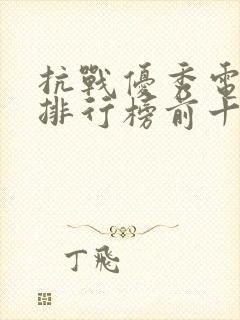 抗戰優秀電
排行榜前十
丁飛